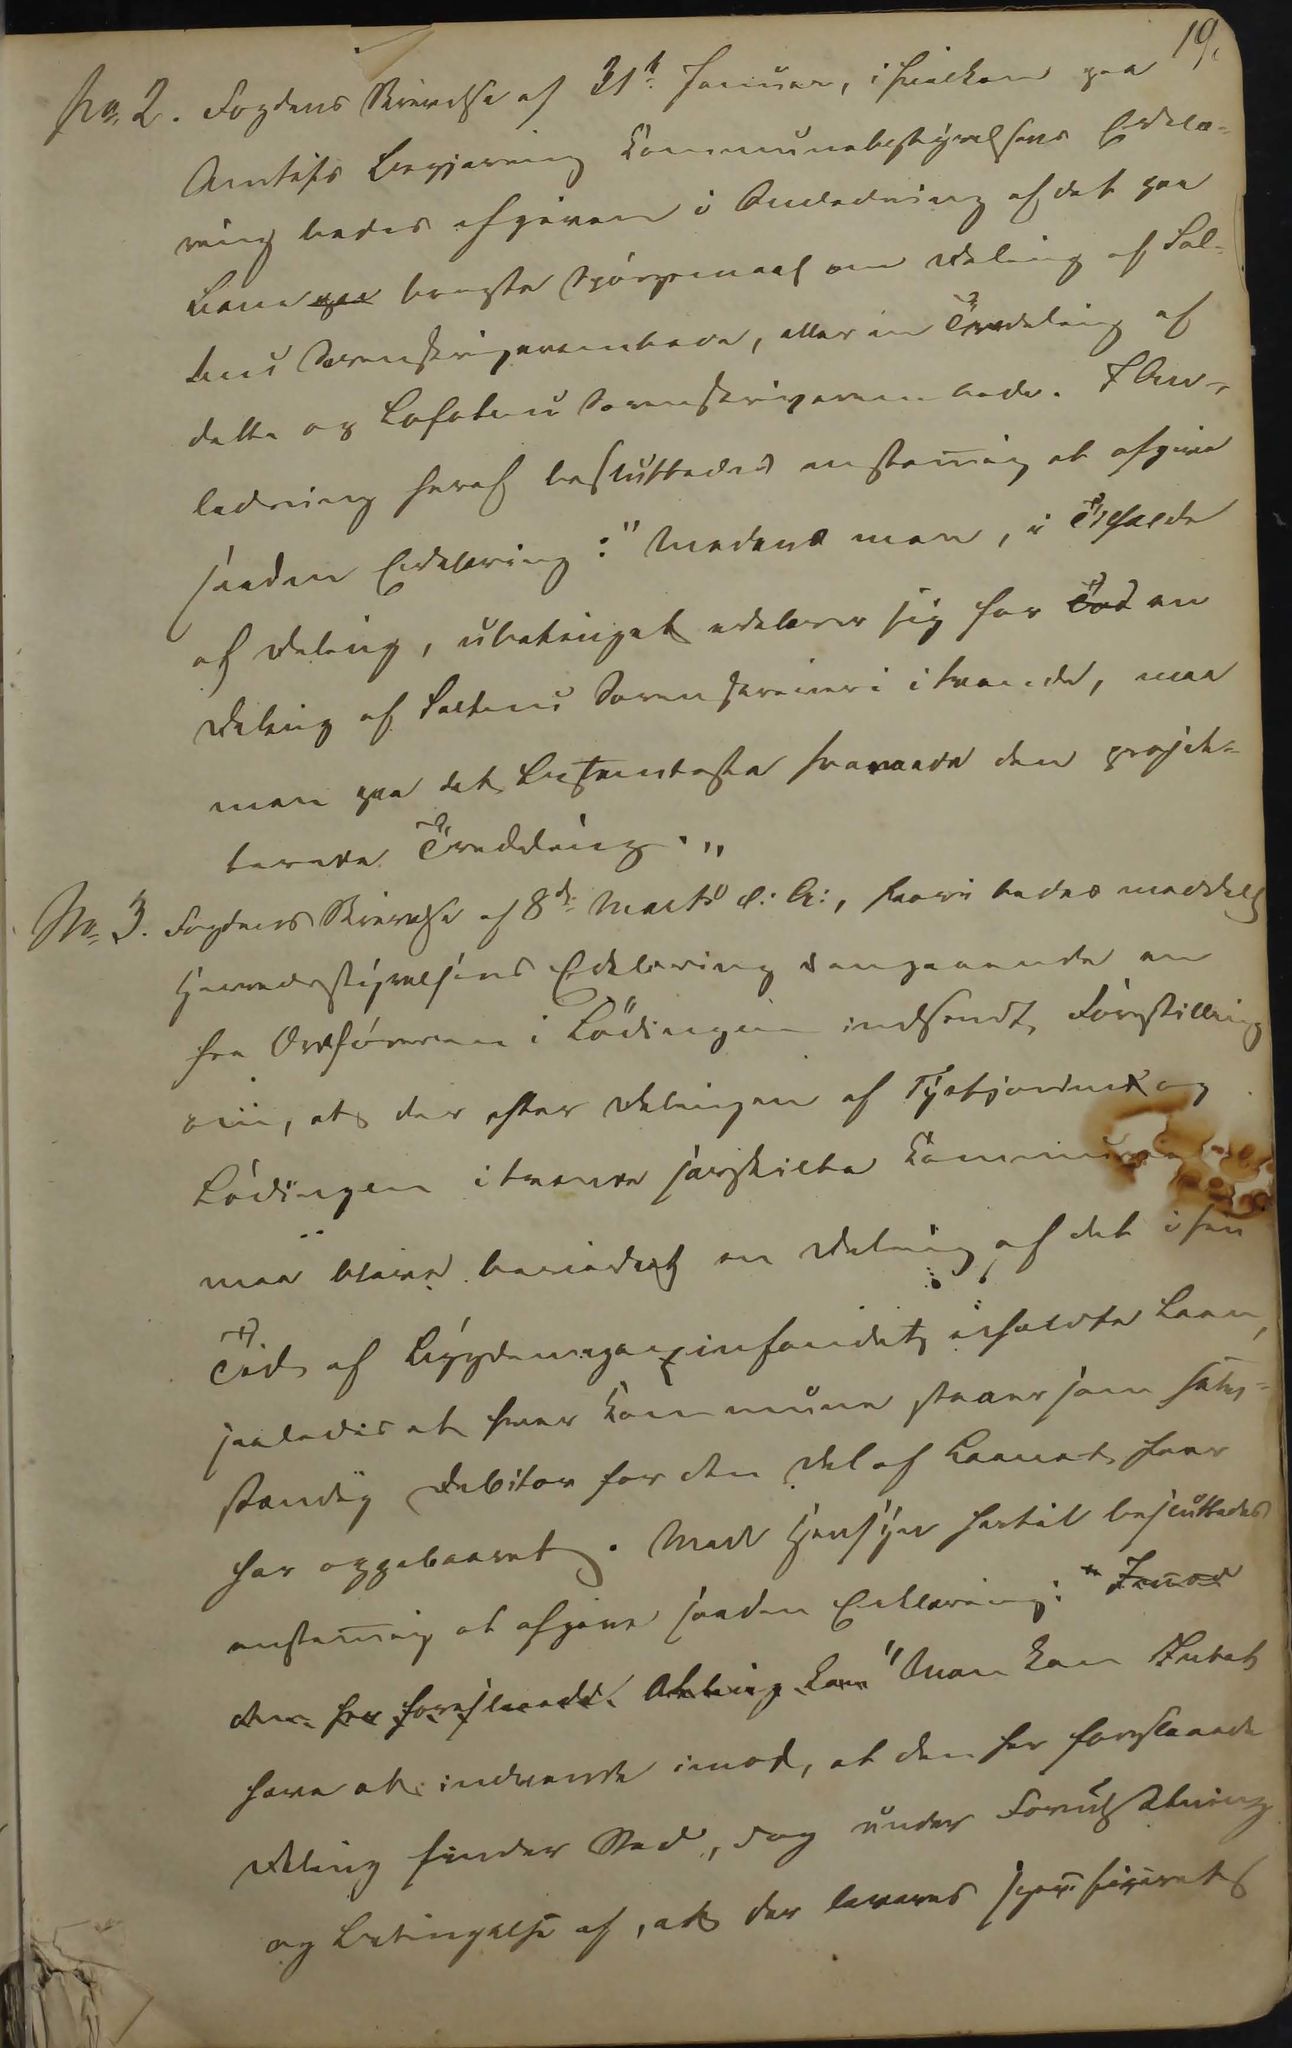 19.
No 2. Fogdens Skrivelse af 31te Januar, i hvilken paa
Amtets Begjæring Kommunebestyrelsens Erklæ-
ring bedes afgiven i Anledning af det paa
Bane paa bragte Spörgsmaal om Deling af Sal-
tens Sorenskriverembede, eller en Tredeling af
dette og Lofotens Sorenskriverembede. I An-
ledning heraf besluttedes enstemig at afgive
saadan Erklæring: "Medens man, i Tilfælde
af Deling, ubetinget erklærer sig for Tod en
Deling af Saltens Sorenskriveri i tvende, maa
man paa det bestemteste fraraade den projek-
terede Tredeling."
No 3. Fogdens Skrivelse af 8de Marts d: A:, hvori bedes meddelt
Herredsstyrelsens Erklæring angaaende en
fra Ordföreren i Lödingen indsendt Forestilling
om, at der efter Delingen af Tysfjorden og
Lödingen i tvende særskilte Kommuner
maa blive bevirket en Deling af det i sin
Tid af Bygdemagazinfondet erholdte Laan,
saaledes at hver Kommune staaer som selv-
stændig Debitor for den Del af Laanet, hver
har oppebaaret. Med Hensyn hertil besluttedes
enstemig at afgive saadan Erklæring: "Imod
den her foreslaaede Deling kan "Man kan Intet
have at indvende imod, at den her foreslaaede
Deling finder Sted, dog under Forudsætning
og Betingelse af, at der leveres specificeret